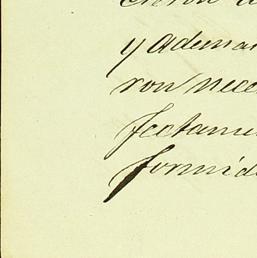 y ademas
ron nece
fectame
formida